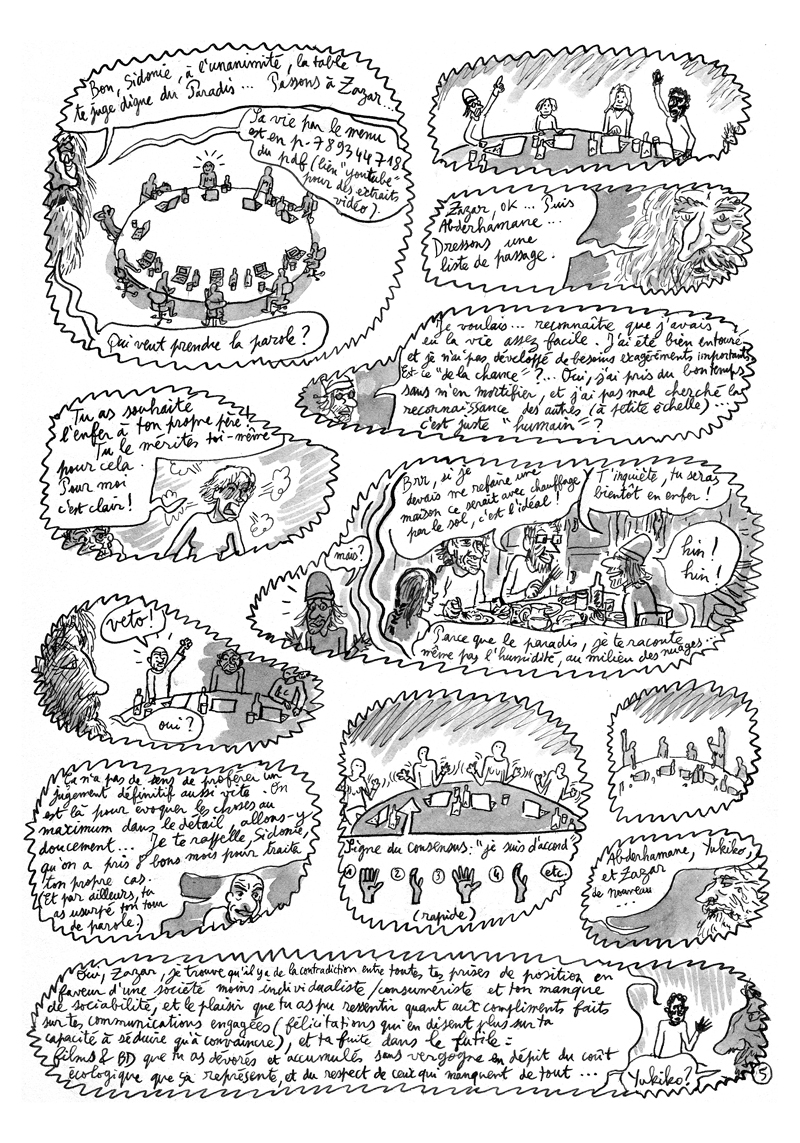 Bon, Sidonie, à l'unanimité, la table
te juge digne du Paradis... Passons à Zazar...
Sa vie par le menu
est en p-789344718
du pdf (lien "youtube"
pour des extraits
vidéo).
Qui veut prendre la parole?
Zazar, OK... Puis
Abderhamane...
Dressons une
liste de passage.
Je voulais... reconnaître que j'avais
eu la vie assez facile. J'ai été bien entouré
et je n'ai pas développé de besoins exagérément importants
Est ce "de la chance"?... Oui, j'ai pris du bon temps
sans m'en mortifier, et j'ai pas mal cherché la
reconnaissance des autres (à petite échelle)...
c'est juste "humain"?
Tu as souhaité
l'enfer à ton propre père!
Tu le mérites toi-même
pour cela.
Pour moi
c'est clair!
mais?
Brr, si je
devais me refaire une
maison ce serait avec chauffage
par le sol, c'est l'idéal!
T'inquiète, tu seras
bientôt en enfer!
hin!
hin!
Parce que le paradis, je te raconte...
même pas l'humidité, au milieu des nuages...
veto!
oui?
Ça n'a pas de sens de proférer un
jugement définitif aussi vite. On
est là pour évoquer les choses au
maximum dans le détail, allons-y
doucement... Je te rappelle, Sidonie,
qu'on a pris 8 bons mois pour traiter
ton propre cas.
(Et par ailleurs, tu
as usurpé ton tour
de parole.)
Signe du consensus: "je suis d'accord"
1 2 3 4 etc.
(rapide)
Abderhamane, Yukiko,
et Zazar
de nouveau
...
Oui, Zazar, je trouve qu'il y a de la contradiction entre toutes tes prises de position en
faveur d'une société moins individualiste/consumériste et ton manque
de sociabilité, et le plaisir que tu as pu ressentir quant aux compliments faits
sur tes communications engagées (félicitations qui en disent plus sur ta
capacité à séduire qu'à convaincre), et ta fuite dans le futile:
films & BD que tu as dévorés et accumulés sans vergogne en dépit du coût
écologique que ça représente, et du respect de ceux qui manquent de tout...
Yukiko?
5